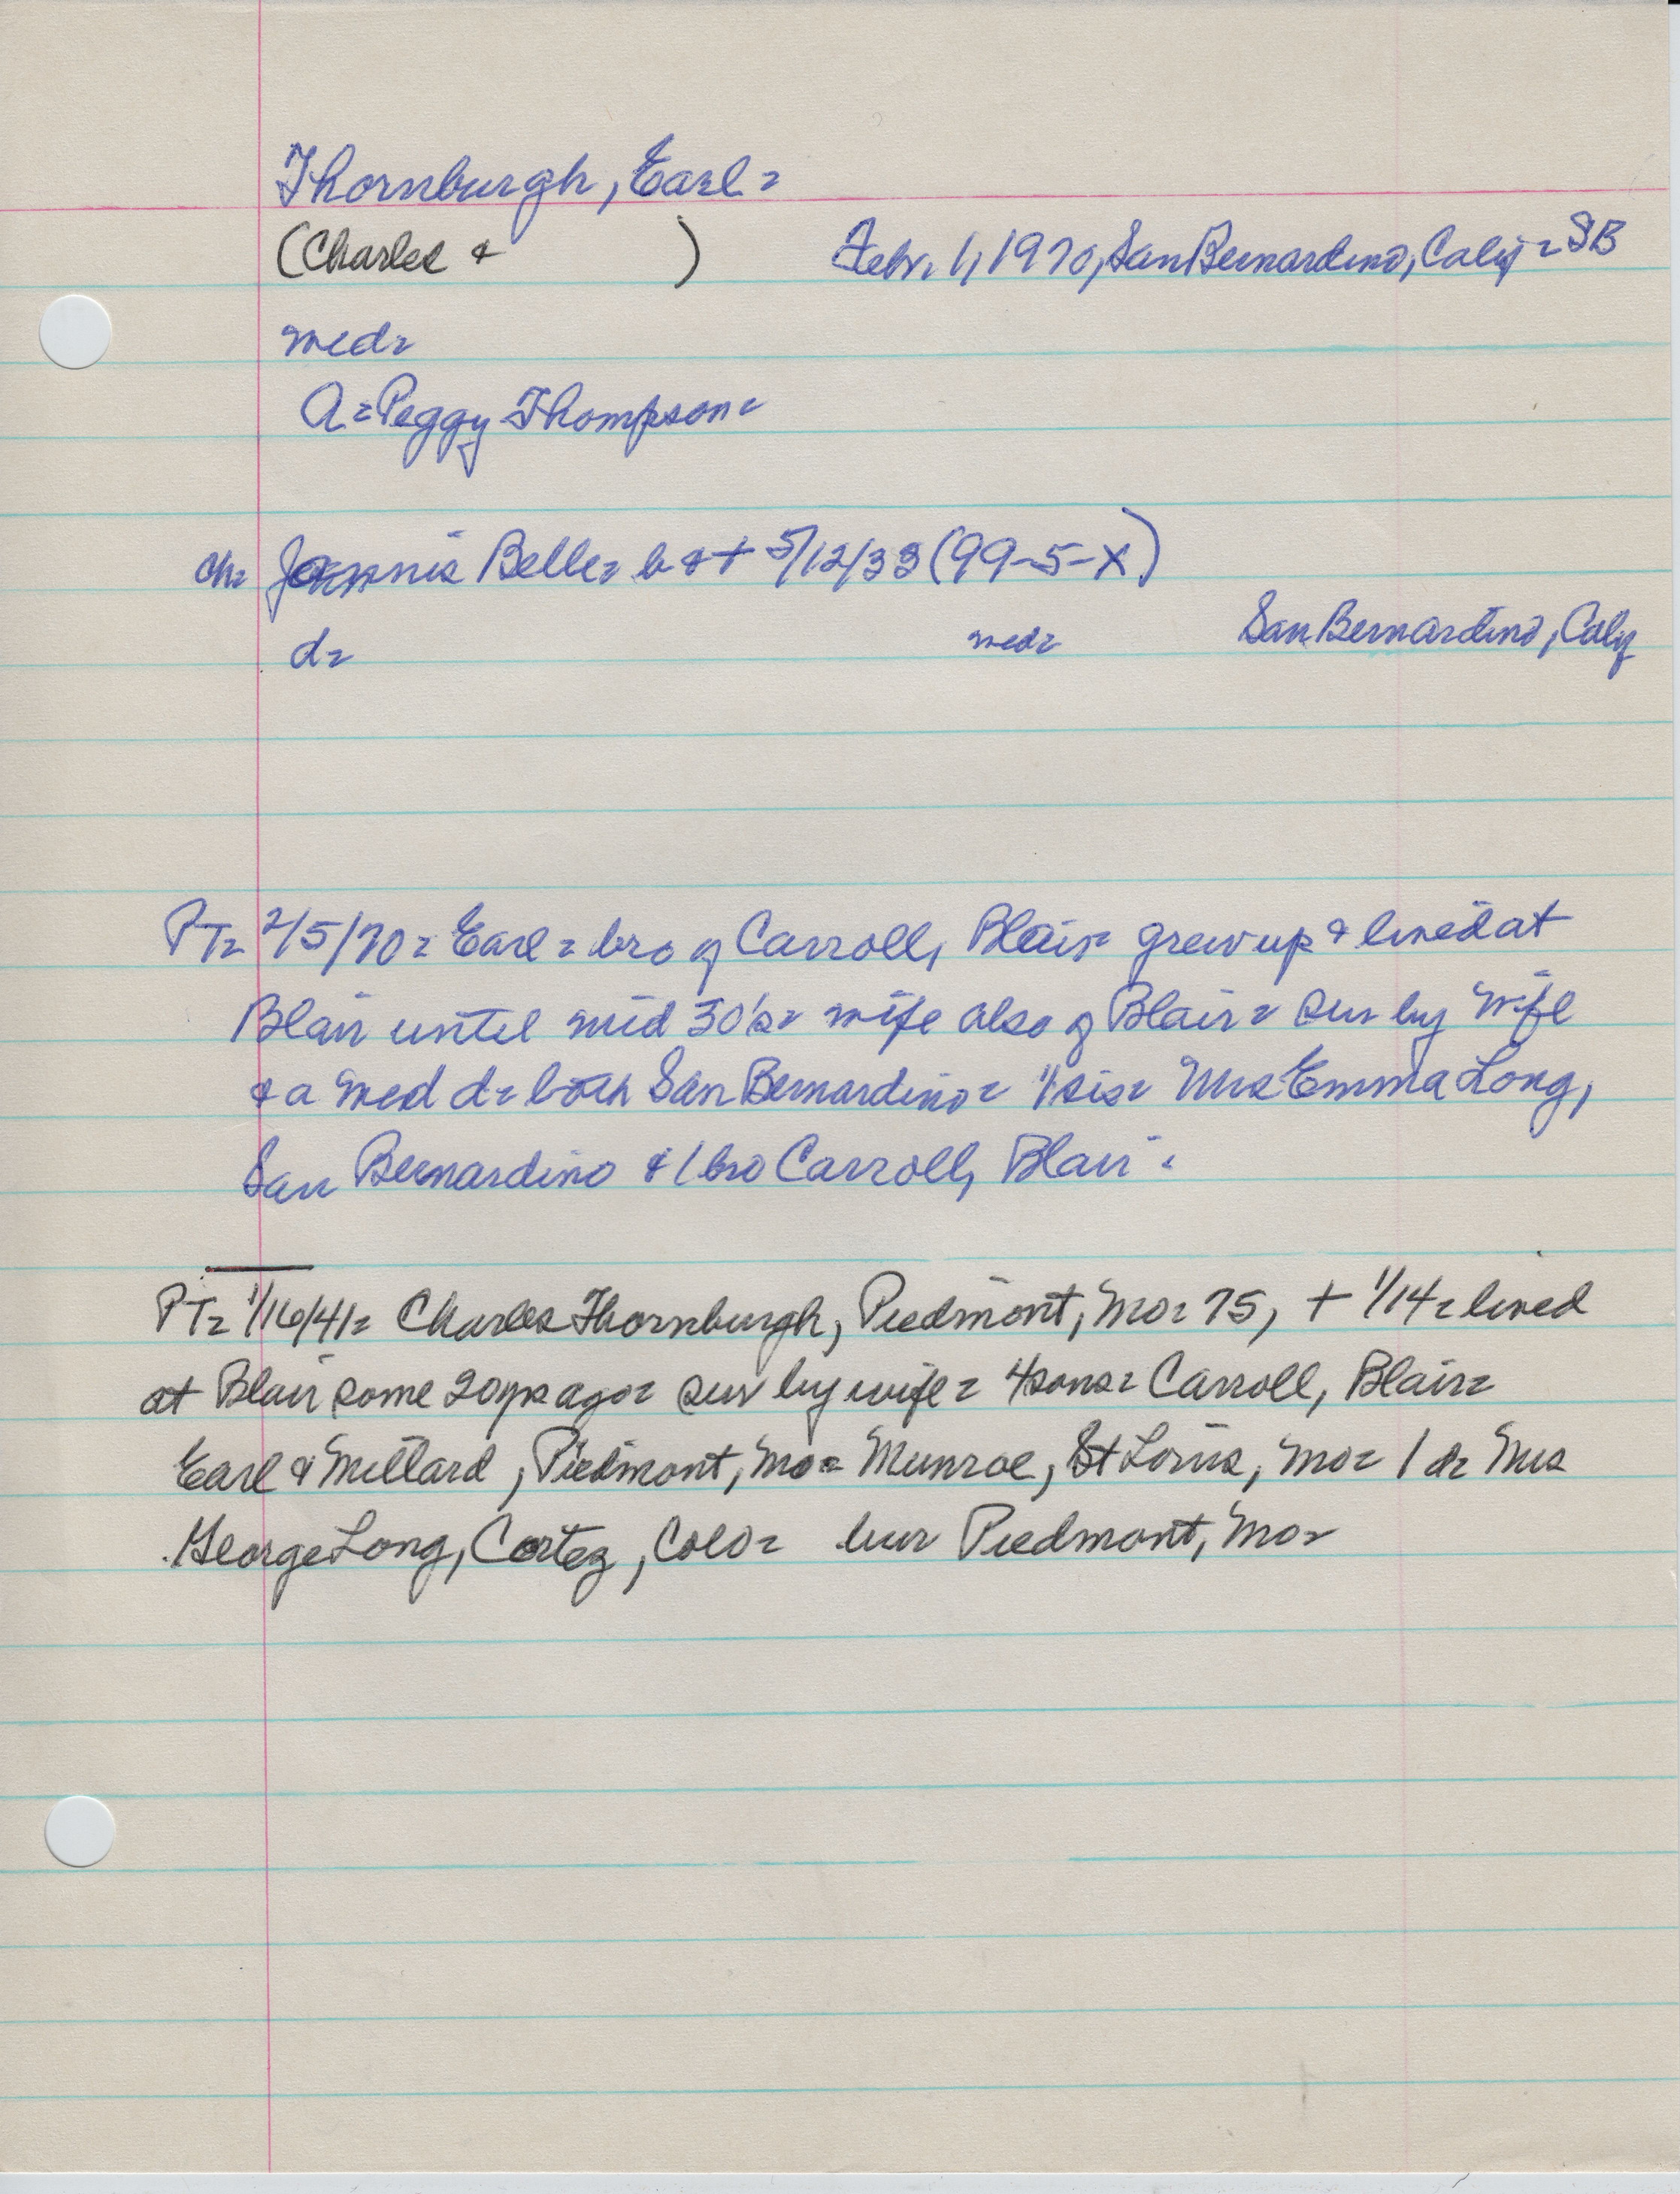 Thornburgh, Earl =
(Charles & )
Febr. 1, 1970, San Bernardino, Calif = SB
med=
A = Peggy Thompson =
ch= Jennnie Belle= b & + 5/12/33 (99-5-X)
d= med= San Bernardino, Calif
PT= 2/5/70 = Earl = bro of Carroll, Blair= grew up & lived at
Blair until mid 30's= wife also of Blair = sur by wife
& a med d= both San Bernardino = 1 sis= Mrs Emma Long,
San Bernardino & 1 bro Carroll, Blair =
PT= 1/16/41= Charles Thornburgh, Piedmont, Mo= 75, + 1/14 = lived
at Blair some 20 yrs ago= sur by wife = 4 sons= Carroll, Blair=
Earl & Millard, Piedmont, Mo = Munroe, St Louis, Mo= 1 d= Mrs
George Long, Cortez, Colo = bur Piedmont, Mo=